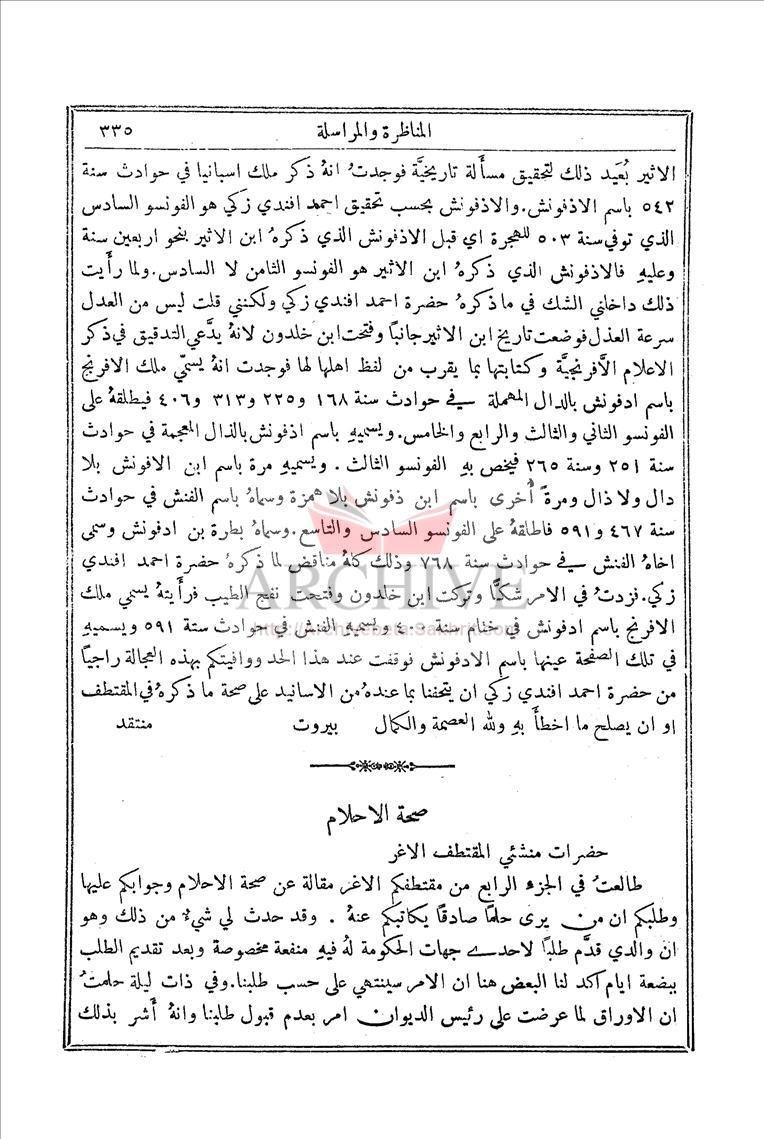 المناظرة والمراسلة ٣٣٥
الاثير بُعَيد ذلك لتحقيق مسأَلة تاريخيَّة فوجدتُ انهُ ذكر ملك اسبانيا في حوادث سنة
٥٤٢ باسم الاذفونش. والاذفونش بحسب تحقيق احمد افندي زكي هو الفونسو السادس
الذي توفي سنة ٥٠٣ للهجرة اي قبل الاذفونش الذي ذكرهُ ابن الاثير بنحو اربعين سنة
وعليهِ فالاذفونش الذي ذكرهُ ابن الاثير هو الفونسو الثامن لا السادس. ولما رأَيت
ذلك داخلني الشك في ما ذكرهُ حضرة احمد افندي زكي ولكنني قلت ليس من العدل
سرعة العذل فوضعت تاريخ ابن الاثير جانبًا وفتحت ابن خلدون لانهُ يدَّعي التدقيق في ذكر
الاعلام الأَفرنجيَّة وكتابتها بما يقرب من لفظ اهلها لها فوجدت انهُ يسمّي ملك الافرنج
باسم ادفونش بالدال المهملة في حوادث سنة ١٦٨ و٢٢٥ و٣١٣ و٤٠٦ فيطلقهُ على
الفونسو الثاني والثالث والرابع والخامس. ويسميهِ باسم اذفونش بالذال المعجمة في حوادث
سنة ٢٥١ وسنة ٢٦٥ فيخص بهِ الفونسو الثالث. ويسميهِ مرة باسم ابن الافونش بلا
دال ولا ذال ومرةً أُخرى باسم ابن ذفونش بلا همزة وسماهُ باسم الفنش في حوادث
سنة ٤٦٧ و٥٩١ فاطلقهُ على الفونسو السادس والتاسع. وسماهُ بطرة بن ادفونش وسمى
اخاهُ الفنش في حوادث سنة ٧٦٨ وذلك كلهُ مناقض لما ذكرهُ حضرة احمد افندي
زكي. فزدتُ في الامر شكًّا وتركت ابن خلدون وفتحت نفح الطيب فرأَيتهُ يسمي ملك
الافرنج باسم ادفونش في ختام سنة ويسميهِ الفنش في حوادث سنة ٥٩١ ويسميهِ
في تلك الصفحة عينها باسم الادفونش فوقفت عند هذا الحد ووافيتكم بهذه العجالة راجيًا
من حضرة احمد افندي زكي ان يتحفنا بما عندهُ من الاسانيد على صحة ما ذكرهُ في المقتطف
او ان يصلح ما اخطأَ بهِ ولله العصمة والكمال بيروت منتقد
صحة الاحلام
حضرات منشئي المقتطف الاغر
طالعتُ في الجزء الرابع من مقتطفكم الاغر مقالة عن صحة الاحلام وجوابكم عليها
وطلبكم ان من يرى حلمًا صادقًا يكاتبكم عنهُ. وقد حدث لي شيءٌ من ذلك وهو
ان والدي قدَّم طلبًا لاحدى جهات الحكومة لهُ فيهِ منفعة مخصوصة وبعد تقديم الطلب
ببضعة ايام اكد لنا البعض هنا ان الامر سينتهي على حسب طلبنا. وفي ذات ليلة حلمتُ
ان الاوراق لما عرضت على رئيس الديوان امر بعدم قبول طلبنا وانهُ أَشر بذلك
ARCHIVE